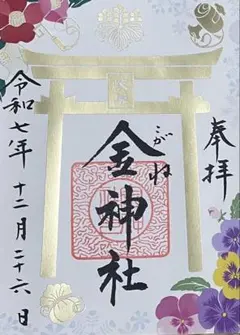 奉拝
金神社
こがね
令和七年十二月二十六日